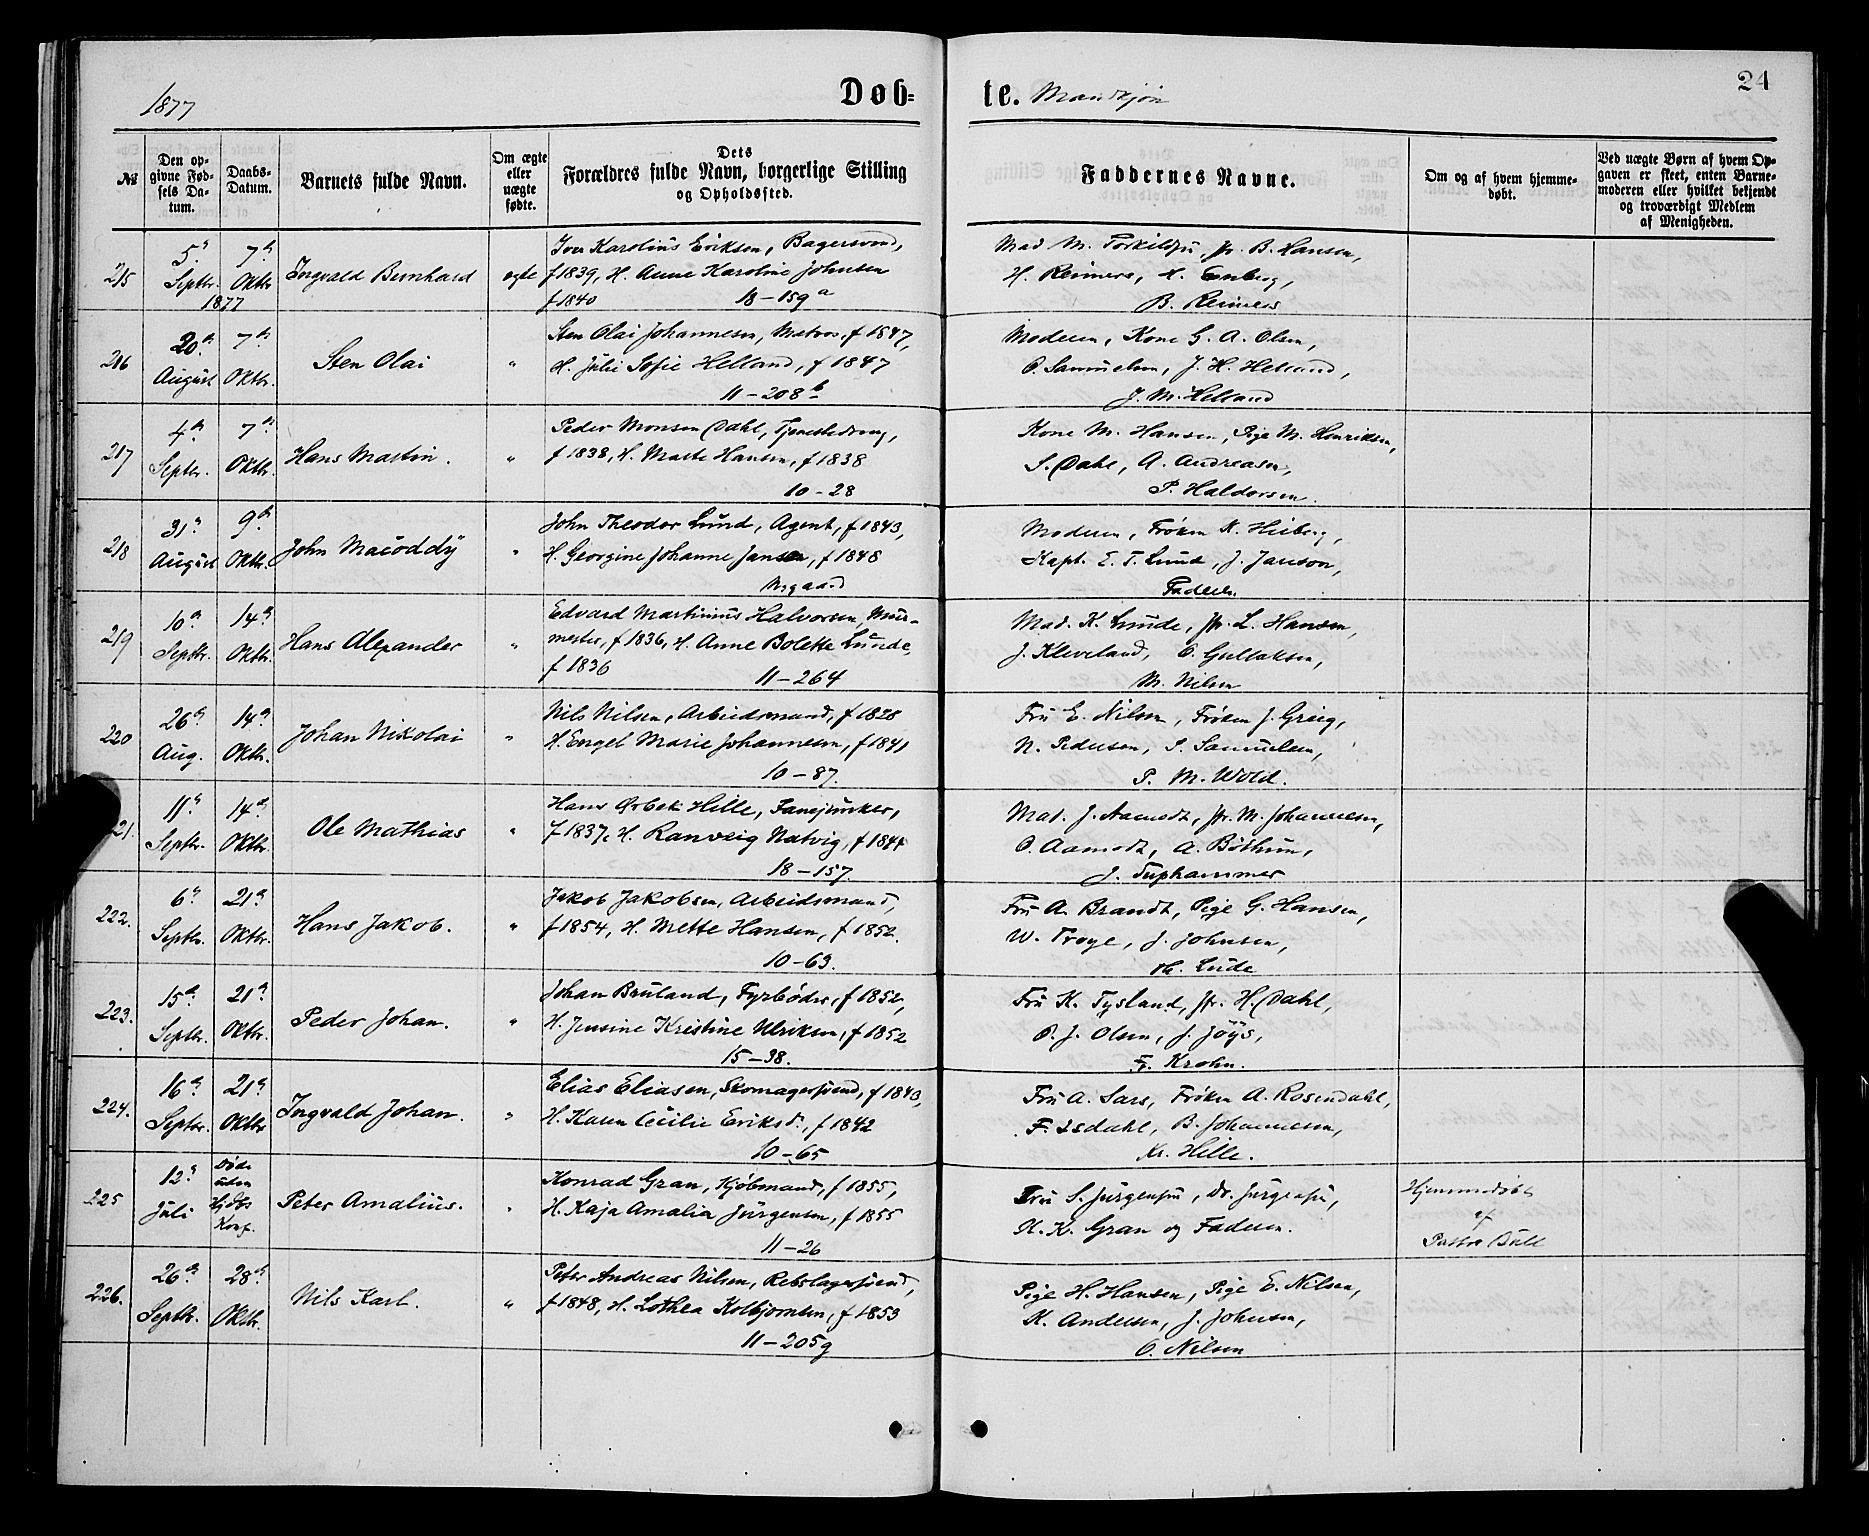 1877
Døb=
te. Mandkjøn
24
№
Den op-
givne Fød-
sels Da-
tum.
Daabs-
Datum.
Barnets fulde Navn.
Om ægte
eller
uægte
fødte.
Dets
Forældres fulde Navn, borgerlige Stilling
og Opholdssted.
Faddernes Navne.
Om og af hvem hjemme-
døbt.
Ved uægte Børn af hvem Op-
gaven er skeet, enten Barne-
moderen eller hvilket bekjendt
og troværdigt Medlem
af Menigheden.
215
5.
Septbr.
1877
7de
Oktbr
Ingvald Bernhard
egte
Iver Karolius Eriksen, Bagersvend,
f 1839, H. Anne Karoline Johnsen
f 1840 18-159a
Mad M. Torkildsen, Jfr. B. Hansen,
H. Reimers, H. Enberg,
B. Reimers
216
20de
August
7de
Oktbr.
Sten Olai
"
Sten Olai Johannesen, Matros, f 1847,
H. Julie Sofie Helland, f 1847
11-208b
Moderen, Kone G. A. Olsen,
O. Samuelsen, J. H. Helland,
J. M. Helland
217
4de
Septbr.
7de
Oktbr.
Hans Martin.
"
Peder Monsen Dahl, Tjenestedreng,
f 1838, H. Marte Hansen, f 1838
10-28
Kone M. Hansen, Pige M. Henriksen,
S. Dahl, A. Andreasen,
P. Haldorsen.
218
31
August
9de
Oktbr.
John Macoddy
"
John Theodor Lund, Agent, f 1843,
H. Georgine Johanne Jansen, f 1848
Nygaard
Moderen, Frøken K. Heiberg,
Kapt. E. T. Lund, J. Janson,
Faderen
219
10de
Septbr.
14de
Oktbr.
Hans Alexander
"
Edvard Martinius Halvorsen, Mur-
mester, f 1836, H. Anne Bolette Lunde,
f 1836 11-264
Mad. K. Lunde, Jfr. L. Hansen,
J. Kleveland, O. Gullaksen,
M. Nilsen
220
26de
Aug.
14de
Oktbr.
Johan Nikolai
"
Nils Nilsen, Arbeidsmand, f 1828
H. Engel Marie Johannesen, f 1841
10-87.
Fru E. Nilsen, Frøken J. Grieg,
N. Pedersen, S. Samuelsen,
P. M. Wold.
21.
11
Septbr.
14de
Oktbr.
Ole Mathias
"
Hans Orbek Hille, Fanejunker,
f 1837, H. Ranveig Natvig, f 1844
18-157.
Mad. J. Aamodt, Jfr. M. Johannesen,
O. Aamodt, A. Bøthun,
J. Tuphammer
222.
6
Septbr.
21de
Oktbr.
Hans Jakob.
"
Jakob Jakobsen, Arbeidsmand,
f 1854, H. Mette Hansen, f 1852.
10-63.
Fru A. Brandt, Pige G. Hansen,
W. Troye, J. Johnsen,
223.
15de
Septbr.
21de
Oktbr.
Peder Johan.
"
Johan Bruland, Fyrbøder, f 1852,
H. Jensine Kristine Ulriksen, f 1852
15-38.
Fru K. Tysland, Jfr. H. Dahl,
O. J. Olsen, J. Jöÿs,
Fr. Krohn.
224.
16de
Septbr.
21de
Oktbr
Ingvald Johan.
"
Elias Eliasen, Skomagersvend, f 1843,
H. Karen Cecilie Eriksd., f 1842
10-65
Fru A. Sars, Frøken A. Rosendahl,
F. Isdahl, B. Johannesen,
Kr. Hille.
225
12
Juli
Døde
uden
Hjdbs
Konf.
Peter Amalius.
"
Konrad Gran, Kjøbmand, f 1855,
H. Kaja Amalia Jürgensen, f 1855
11-26
Fru S. Jürgensen, Dr. Jürgensen,
H. K. Gran og Faderen.
Hjemmedøbt
af
Pastor Bull
226.
26de
Septbr.
28de
Oktbr.
Nils Karl.
"
Peter Andreas Nilsen, Rebslagersvend,
f 1848, H. Lothea Kolbjørnsen, f 1853
11-205g
Pige H. Hansen, Pige E. Nilsen,
K. Andersen, J. Johnsen,
O. Nilsen